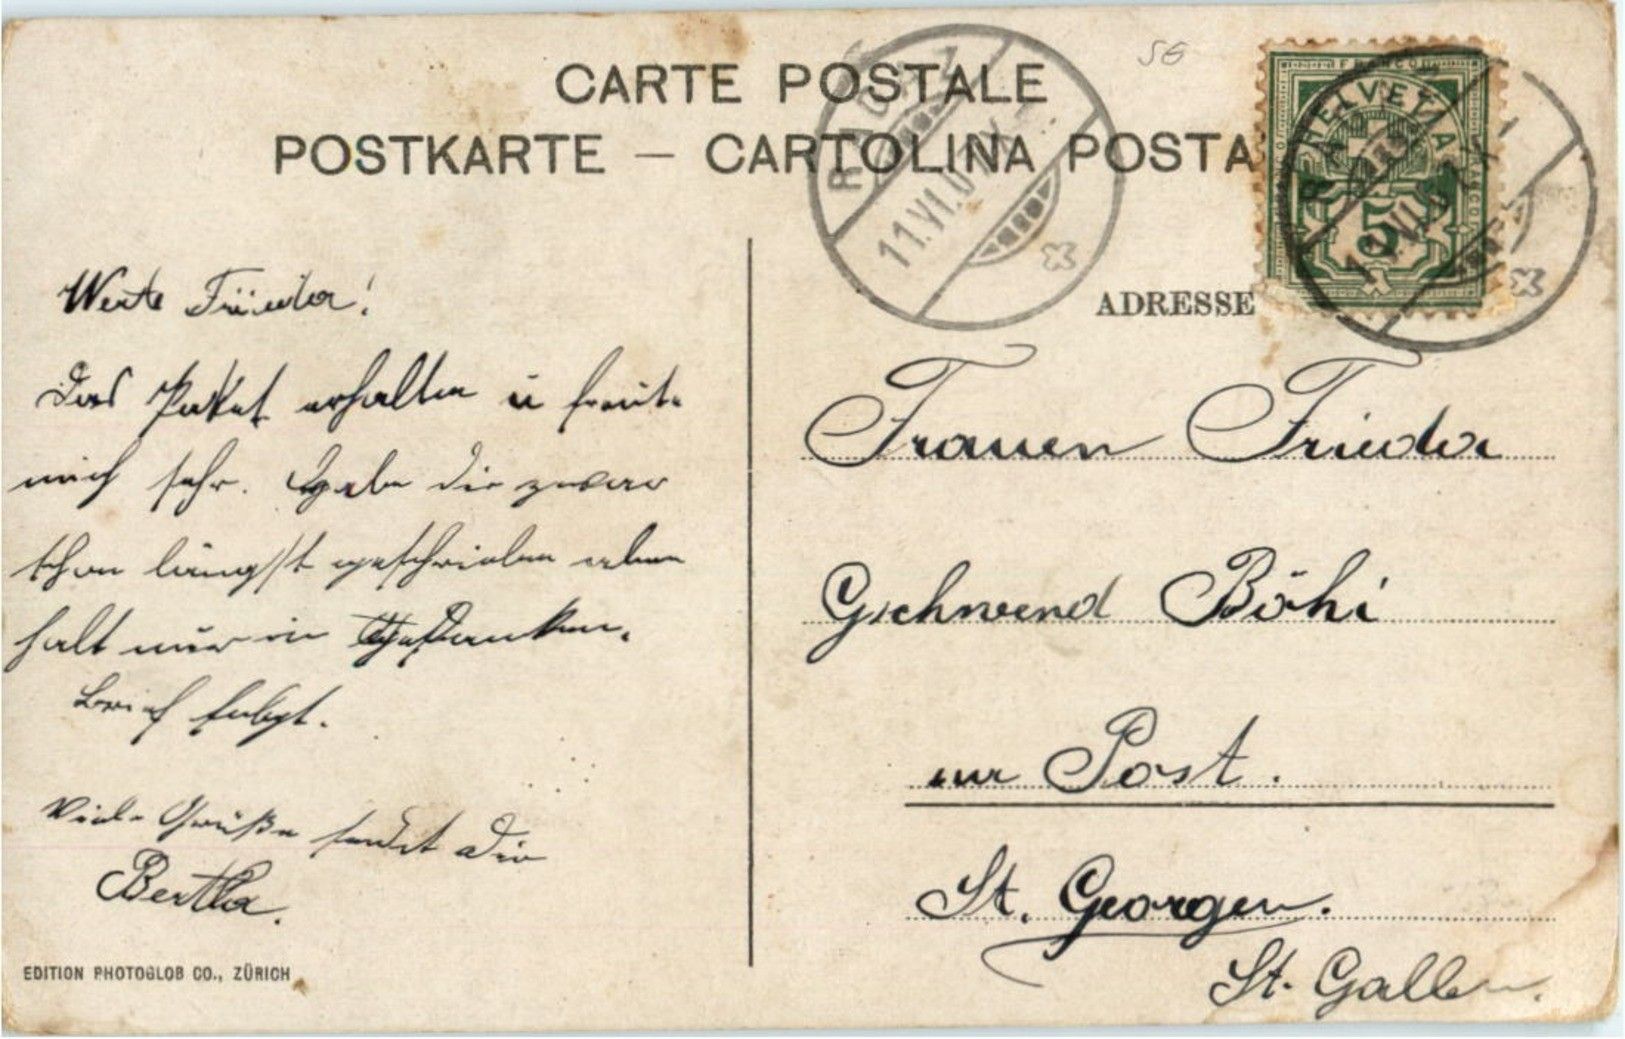 56
CARTE POSTALE
POSTKARTE — CARTOLINA POSTA
FRANCO
HELVETIA
5
11.VI.07.X
11.VI.07.X
ADRESSE
Werte Frieda!
Das Paket erhalten u freut
mich sehr. Habe dir zwar
schon längst geschrieben aber
halt nur in Gedanken.
Brief folgt.
Viele Grüße sendet dir
Bertha.
EDITION PHOTOGLOB CO., ZÜRICH
Frauen Frieda
Gschwend Böhi
zur Post.
St. Georgen.
St. Gallen.